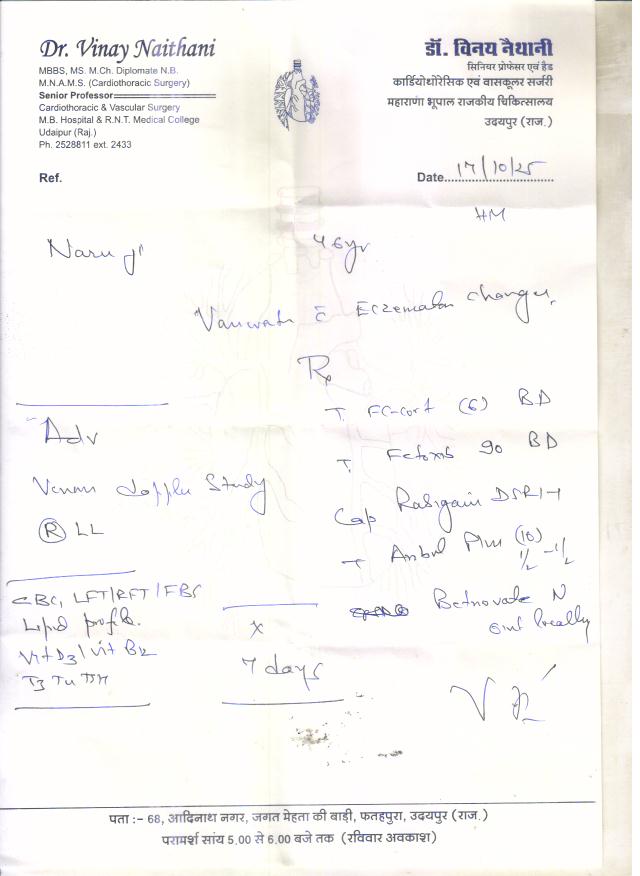 Dr. Vinay Naithani
MBBS, MS. M.Ch. Diplomate N.B.
M.N.A.M.S. (Cardiothoracic Surgery)
Senior Professor
Cardiothoracic & Vascular Surgery
M.B. Hospital & R.N.T. Medical College
Udaipur (Raj.)
Ph. 2528811 ext. 2433
Ref.
डॉ. विनय नैथानी
सिनियर प्रोफेसर एवं हैड
कार्डियोथोरेसिक एवं वासकूलर सर्जरी
महाराणा भूपाल राजकीय चिकित्सालय
उदयपुर (राज.)
Date 17/10/25
HM
Naru ji 46yr
Eczematous changes
Rx
T. (6) BD
T. 90 BD
Cap DSR 1-1
T Plus (10) 1/2 - 1/2
Betnovate N
oint locally
Adv
Venous doppler Study
(R) LL
CBC, LFT/RFT/FBS
Lipid profile.
Vit D3/Vit B12
T3 T4 TSH
x
7 days
पता :- 68, आदिनाथ नगर, जगत मेहता की बाड़ी, फतहपुरा, उदयपुर (राज.)
परामर्श सांय 5.00 से 6.00 बजे तक (रविवार अवकाश)